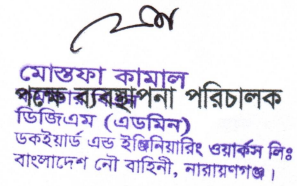 মোস্তফা কামাল
পক্ষে ব্যবস্থাপনা পরিচালক
ডিজিএম (এডমিন)
ডকইয়ার্ড এন্ড ইঞ্জিনিয়ারিং ওয়ার্কস লিঃ
বাংলাদেশ নৌ বাহিনী, নারায়ণগঞ্জ।